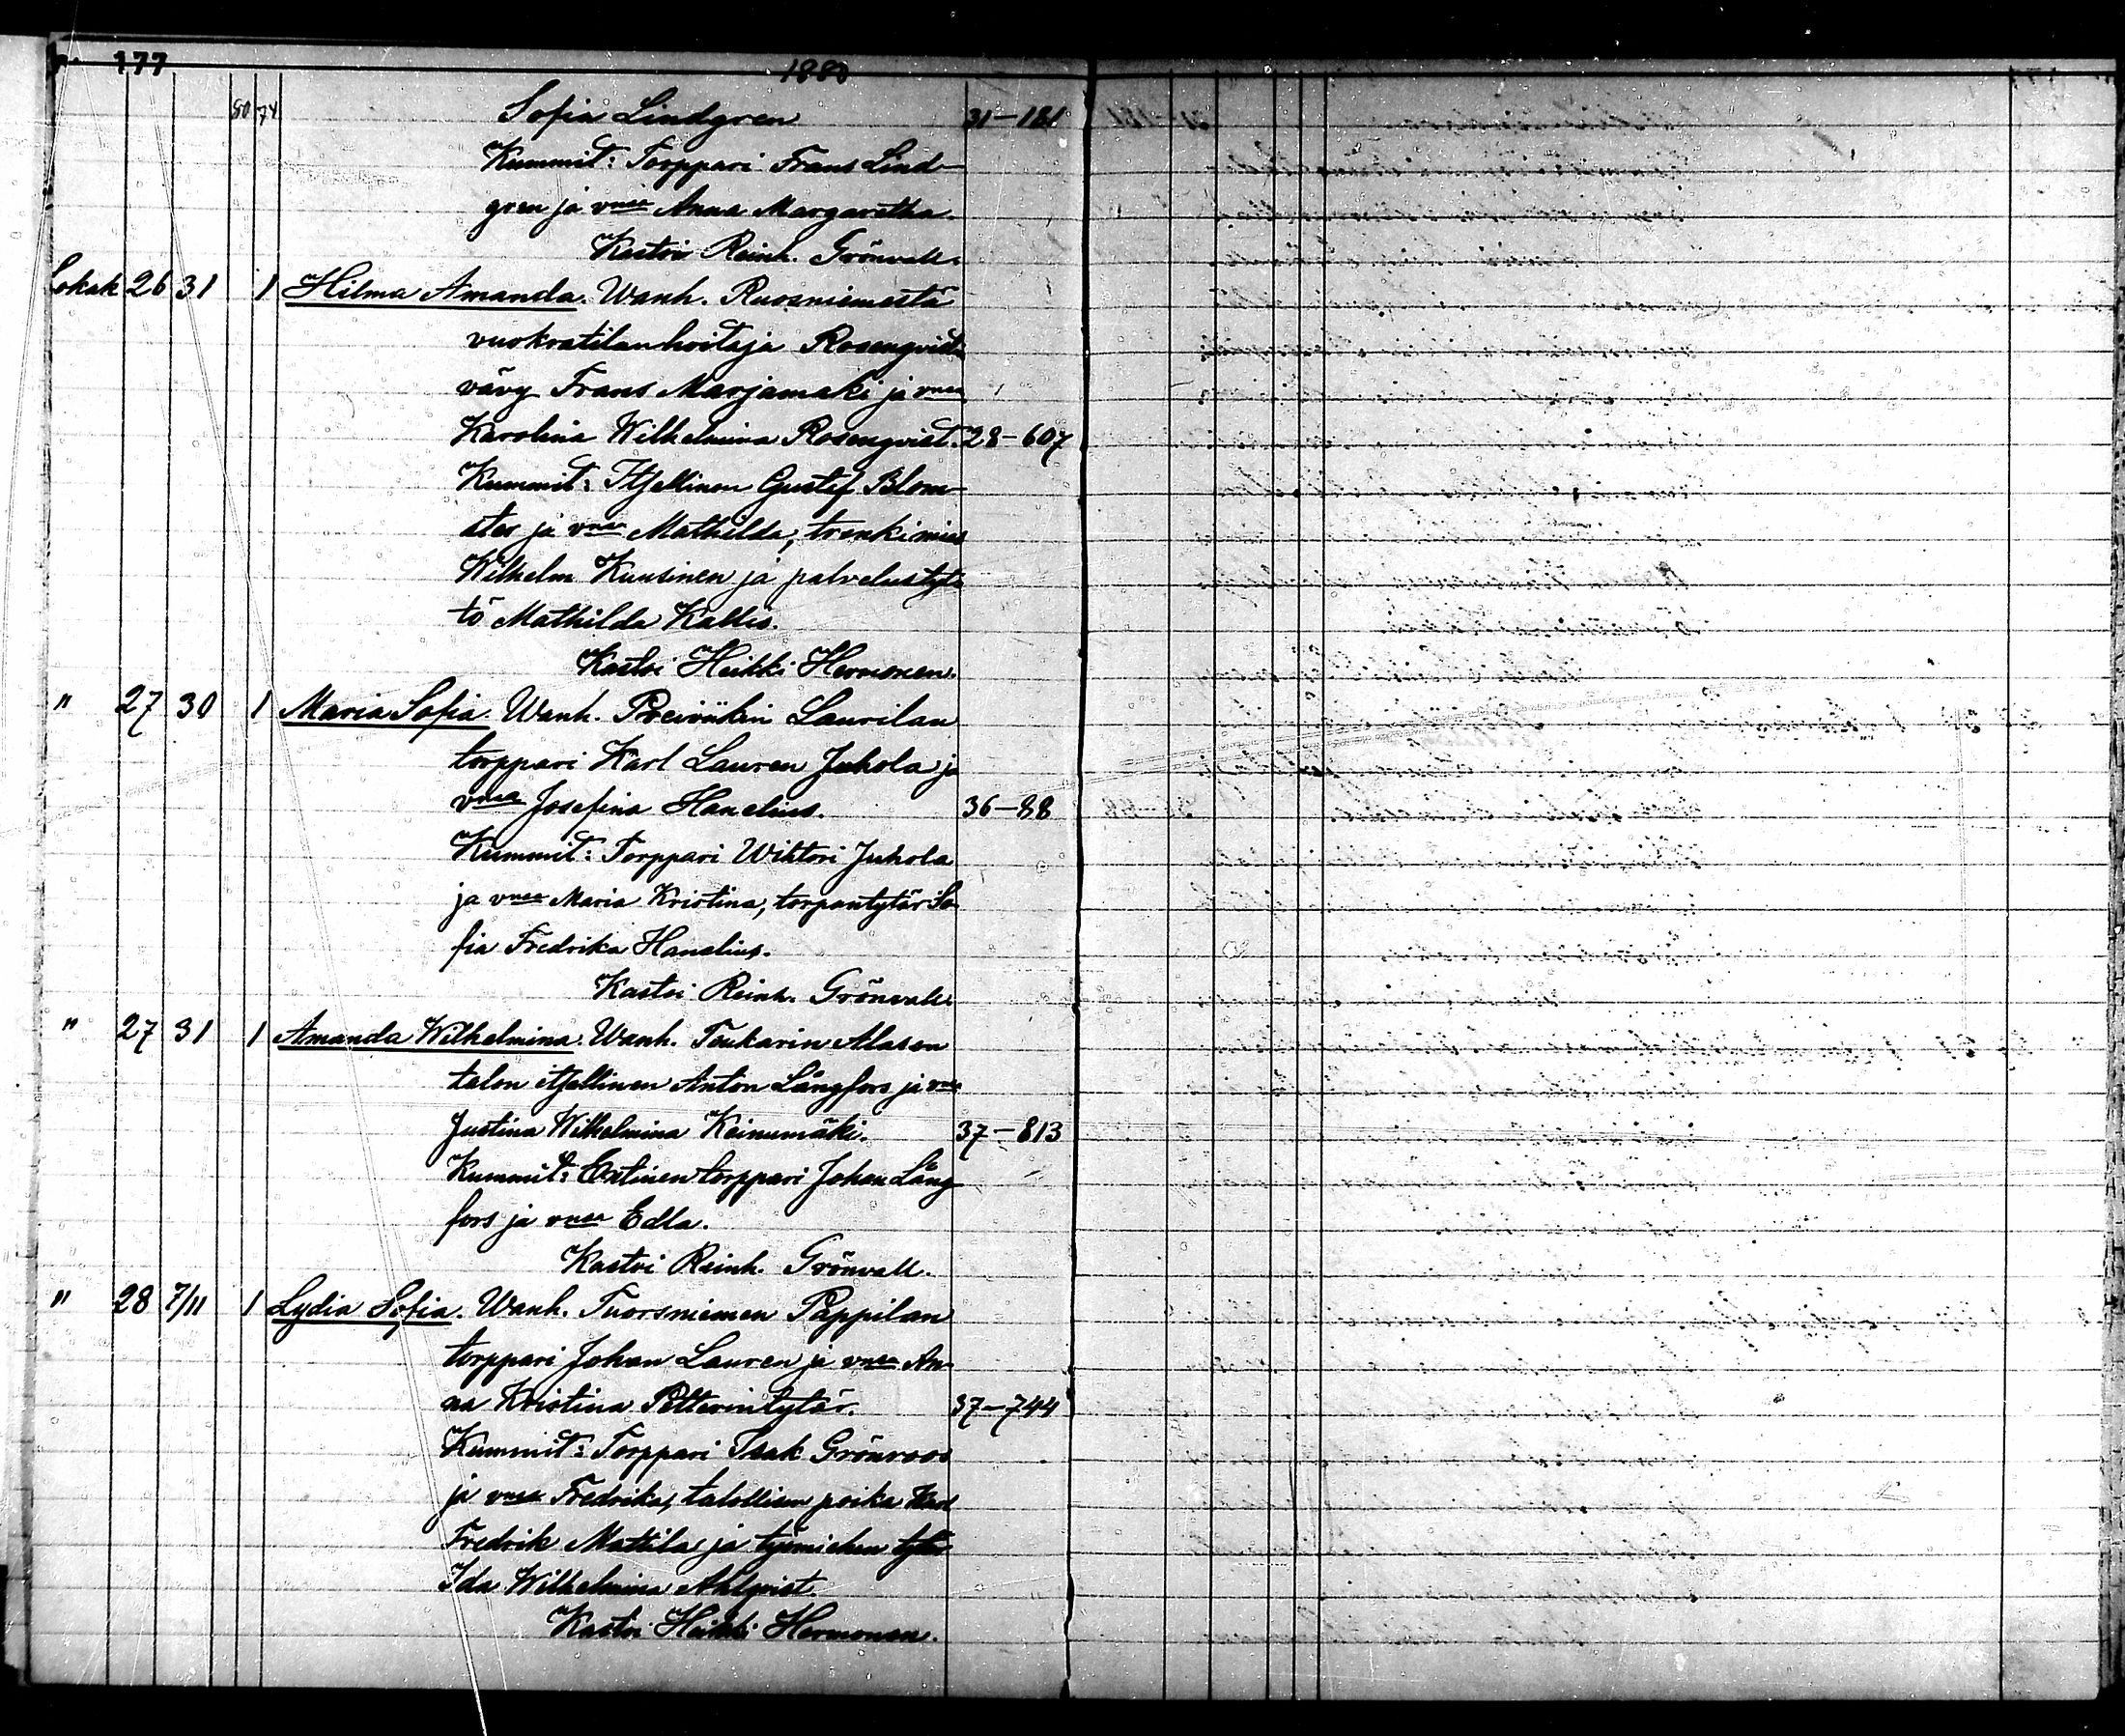 177 1880
80 74 Sofia Lindgren 31-181
Kummit: Torppari Frans Lind-
gren ja vmsa Anna Margaretha.
Kastoi Reinh. Grönvall.
Lokak 26 31 1 Hilma Amanda. Wanh. Ruosniemestä
vuokratilanhoitaja Rosenqvistin
vävy Frans Marjamäki ja vmsa
Karolina Wilhelmina Rosenqvist. 28-607
Kummit: Itsellinen Gustef Blom-
ster ja vmsa Mathilda, trenkimies
Wilhelm Kuusinen ja palvelustyt-
tö Mathilda Kallis.
Kastoi Heikki Hermonen.
" 27 30 1 Maria Sofia. Wanh. Preiviikin Laurilan
torppari Karl Lauren Juhola ja
vmsa Josefina Hanelius. 36-88
Kummit: Torppari Wihtori Juhola
ja vmsa Maria Kristina, torpantytär So-
fia Fredrika Hanelius.
Kastoi Reinh. Grönvall.
" 27 31 1 Amanda Wilhelmina. Wanh. Toukarin Alasen
talon itsellinen Anton Långfors ja vmsa
Justina Wilhelmina Keinumäki. 37-813
Kummit: Entinen torppari Johan Lång-
fors ja vmsa Edla.
Kastoi Reinh. Grönvall.
" 28 7/11 1 Lydia Sofia. Wanh. Tuorsniemen Pappilan
torppari Johan Lauren ja vmsa An-
na Kristina Petterintytär. 37-744
Kummit: Torppari Isak Grönroos
ja vmsa Fredrika, talollisen poika Karl
Fredrik Mattila ja työmiehen tytär
Ida Wilhelmina Ahlqvist
Kastoi Heikki Hermonen.